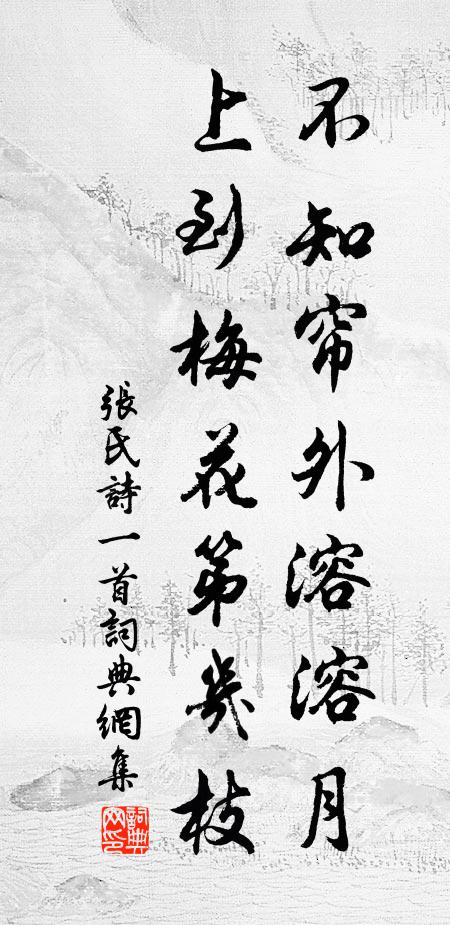 不知帘外溶溶月
上到梅花第幾枝
張氏詩一首詞典網集
詞典網印